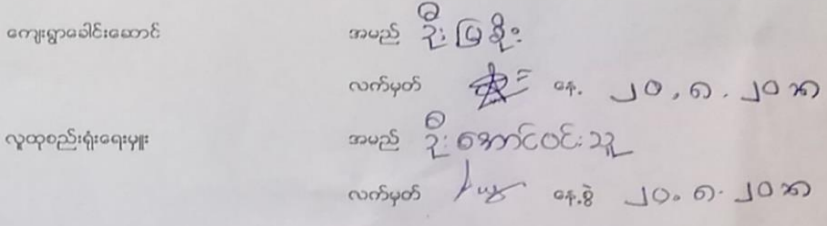 ကျေးရွာခေါင်းဆောင် အမည် ဦးမြစိုး
လက်မှတ် နေ့. ၂၀.၈.၂၀၁၈
လူထုစည်းရုံးရေးမှူး အမည် ဦးအောင်ဝင်းသူ
လက်မှတ် နေ့.စွဲ ၂၀.၈.၂၀၁၈